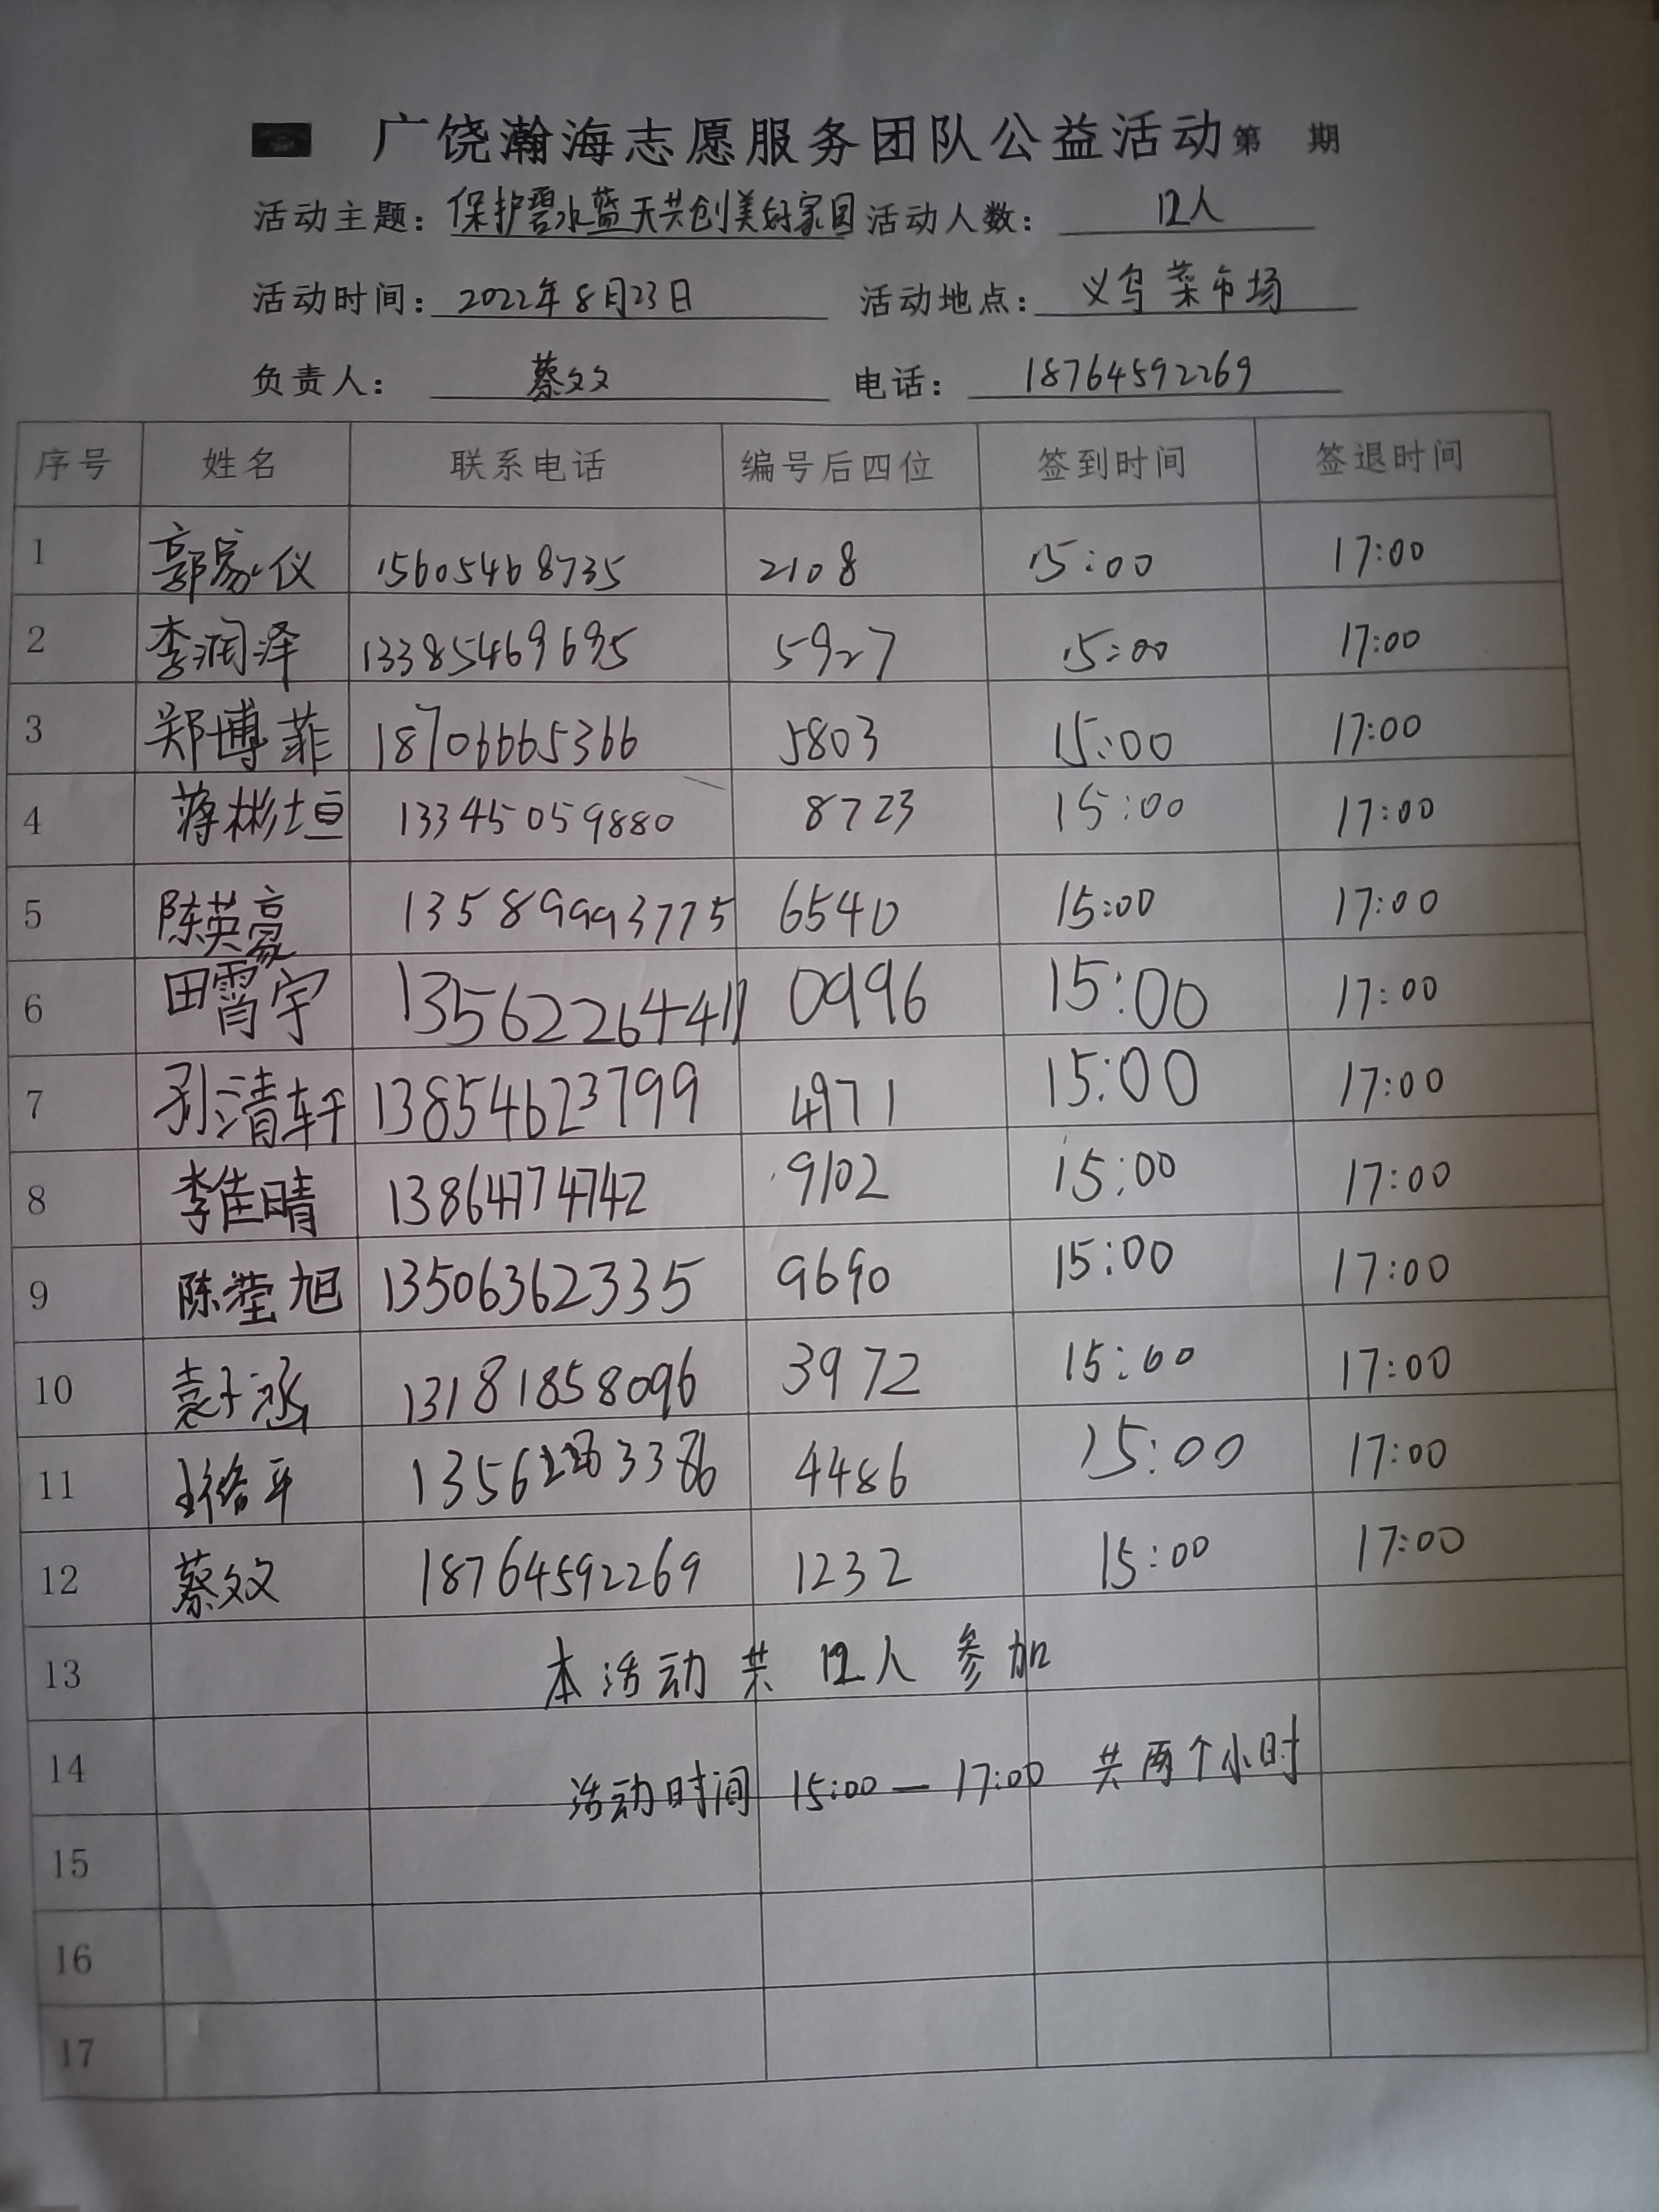 广饶瀚海志愿服务团队公益活动第 期
活动主题：保护碧水蓝天共创美好家园 活动人数：12人
活动时间：2022年8月23日 活动地点：义乌菜市场
负责人：蔡文文 电话：18764592269
序号 姓名 联系电话 编号后四位 签到时间 签退时间
1 郭家仪 15605468735 2108 15:00 17:00
2 李润泽 13385469695 5927 15:00 17:00
3 郑博菲 18706665366 5803 15:00 17:00
4 蒋彬垣 13345059880 8723 15:00 17:00
5 陈英豪 13589993775 6540 15:00 17:00
6 田霄宇 13562264411 0996 15:00 17:00
7 孙清轩 13854623799 4971 15:00 17:00
8 李佳晴 13864774742 9102 15:00 17:00
9 陈滢旭 13506362335 9690 15:00 17:00
10 袁子涵 13181858096 3972 15:00 17:00
11 4486 15:00 17:00
12 蔡文文 18764592269 1232 15:00 17:00
13 本活动共12人参加
14 活动时间 15:00—17:00 共两个小时
15
16
17